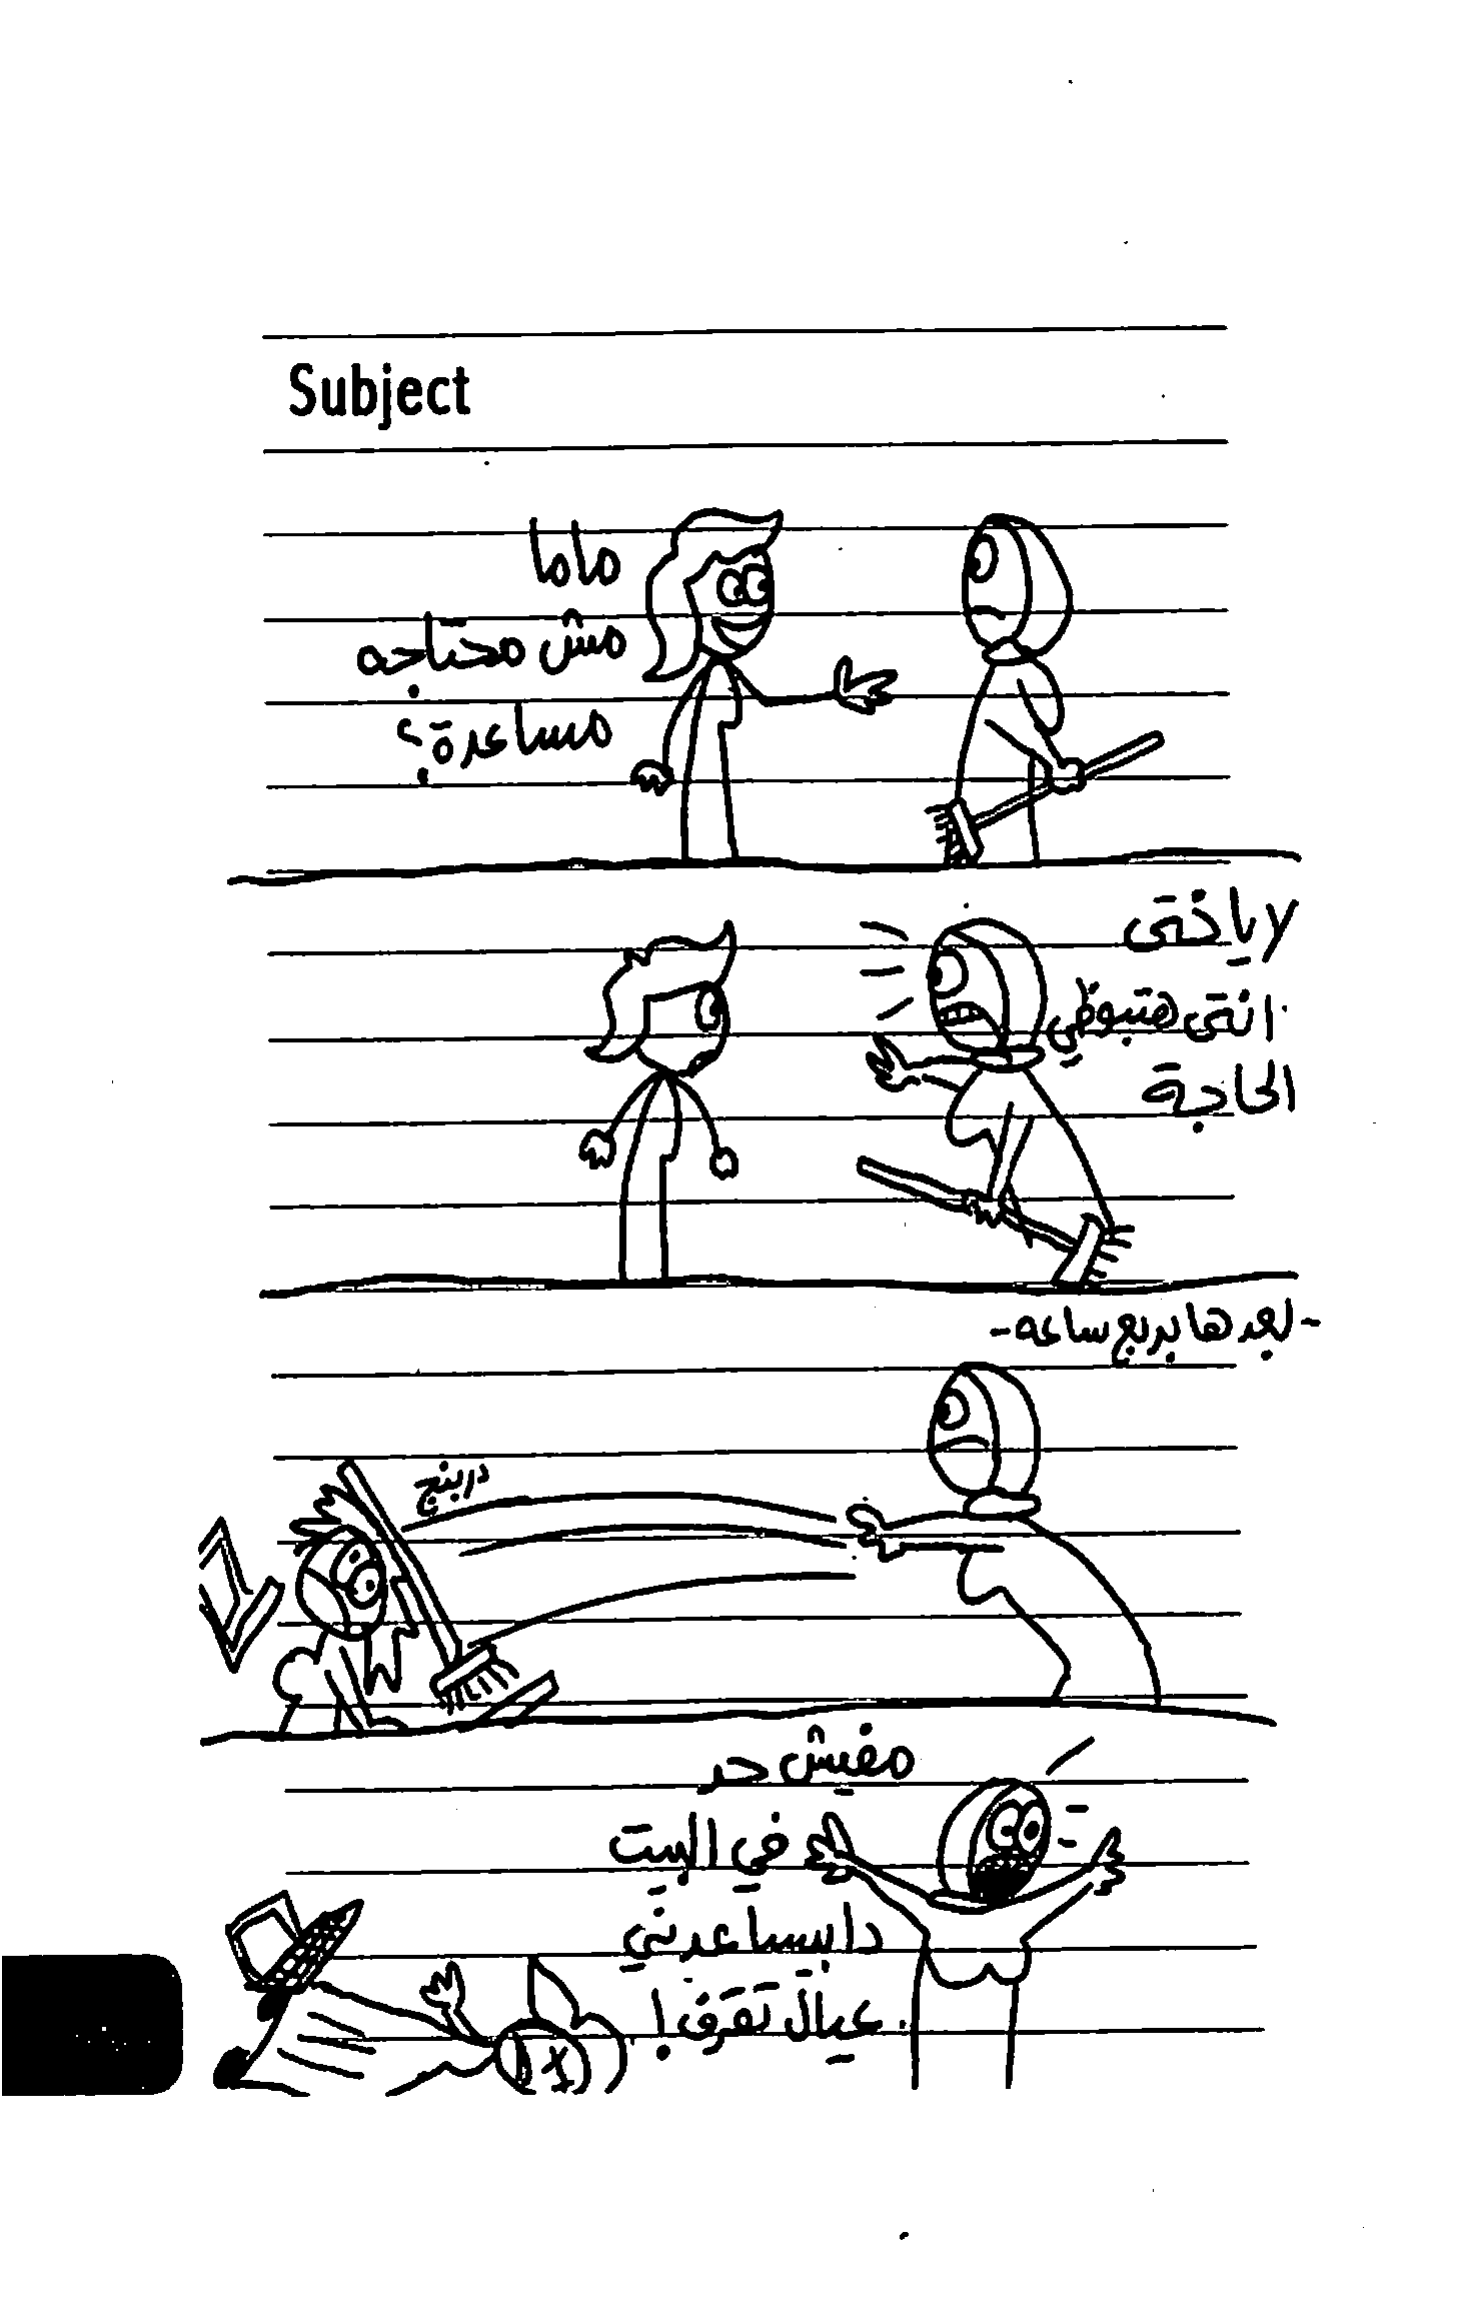 Subject
ماما
مش محتاجه
مساعدة؟
لا ياختى
انتى هتبوظي
الحاجة
-بعدها بربع ساعه-
دربنج
مفيش حد
في البيت
دا بيساعدني
عيال تقرف!